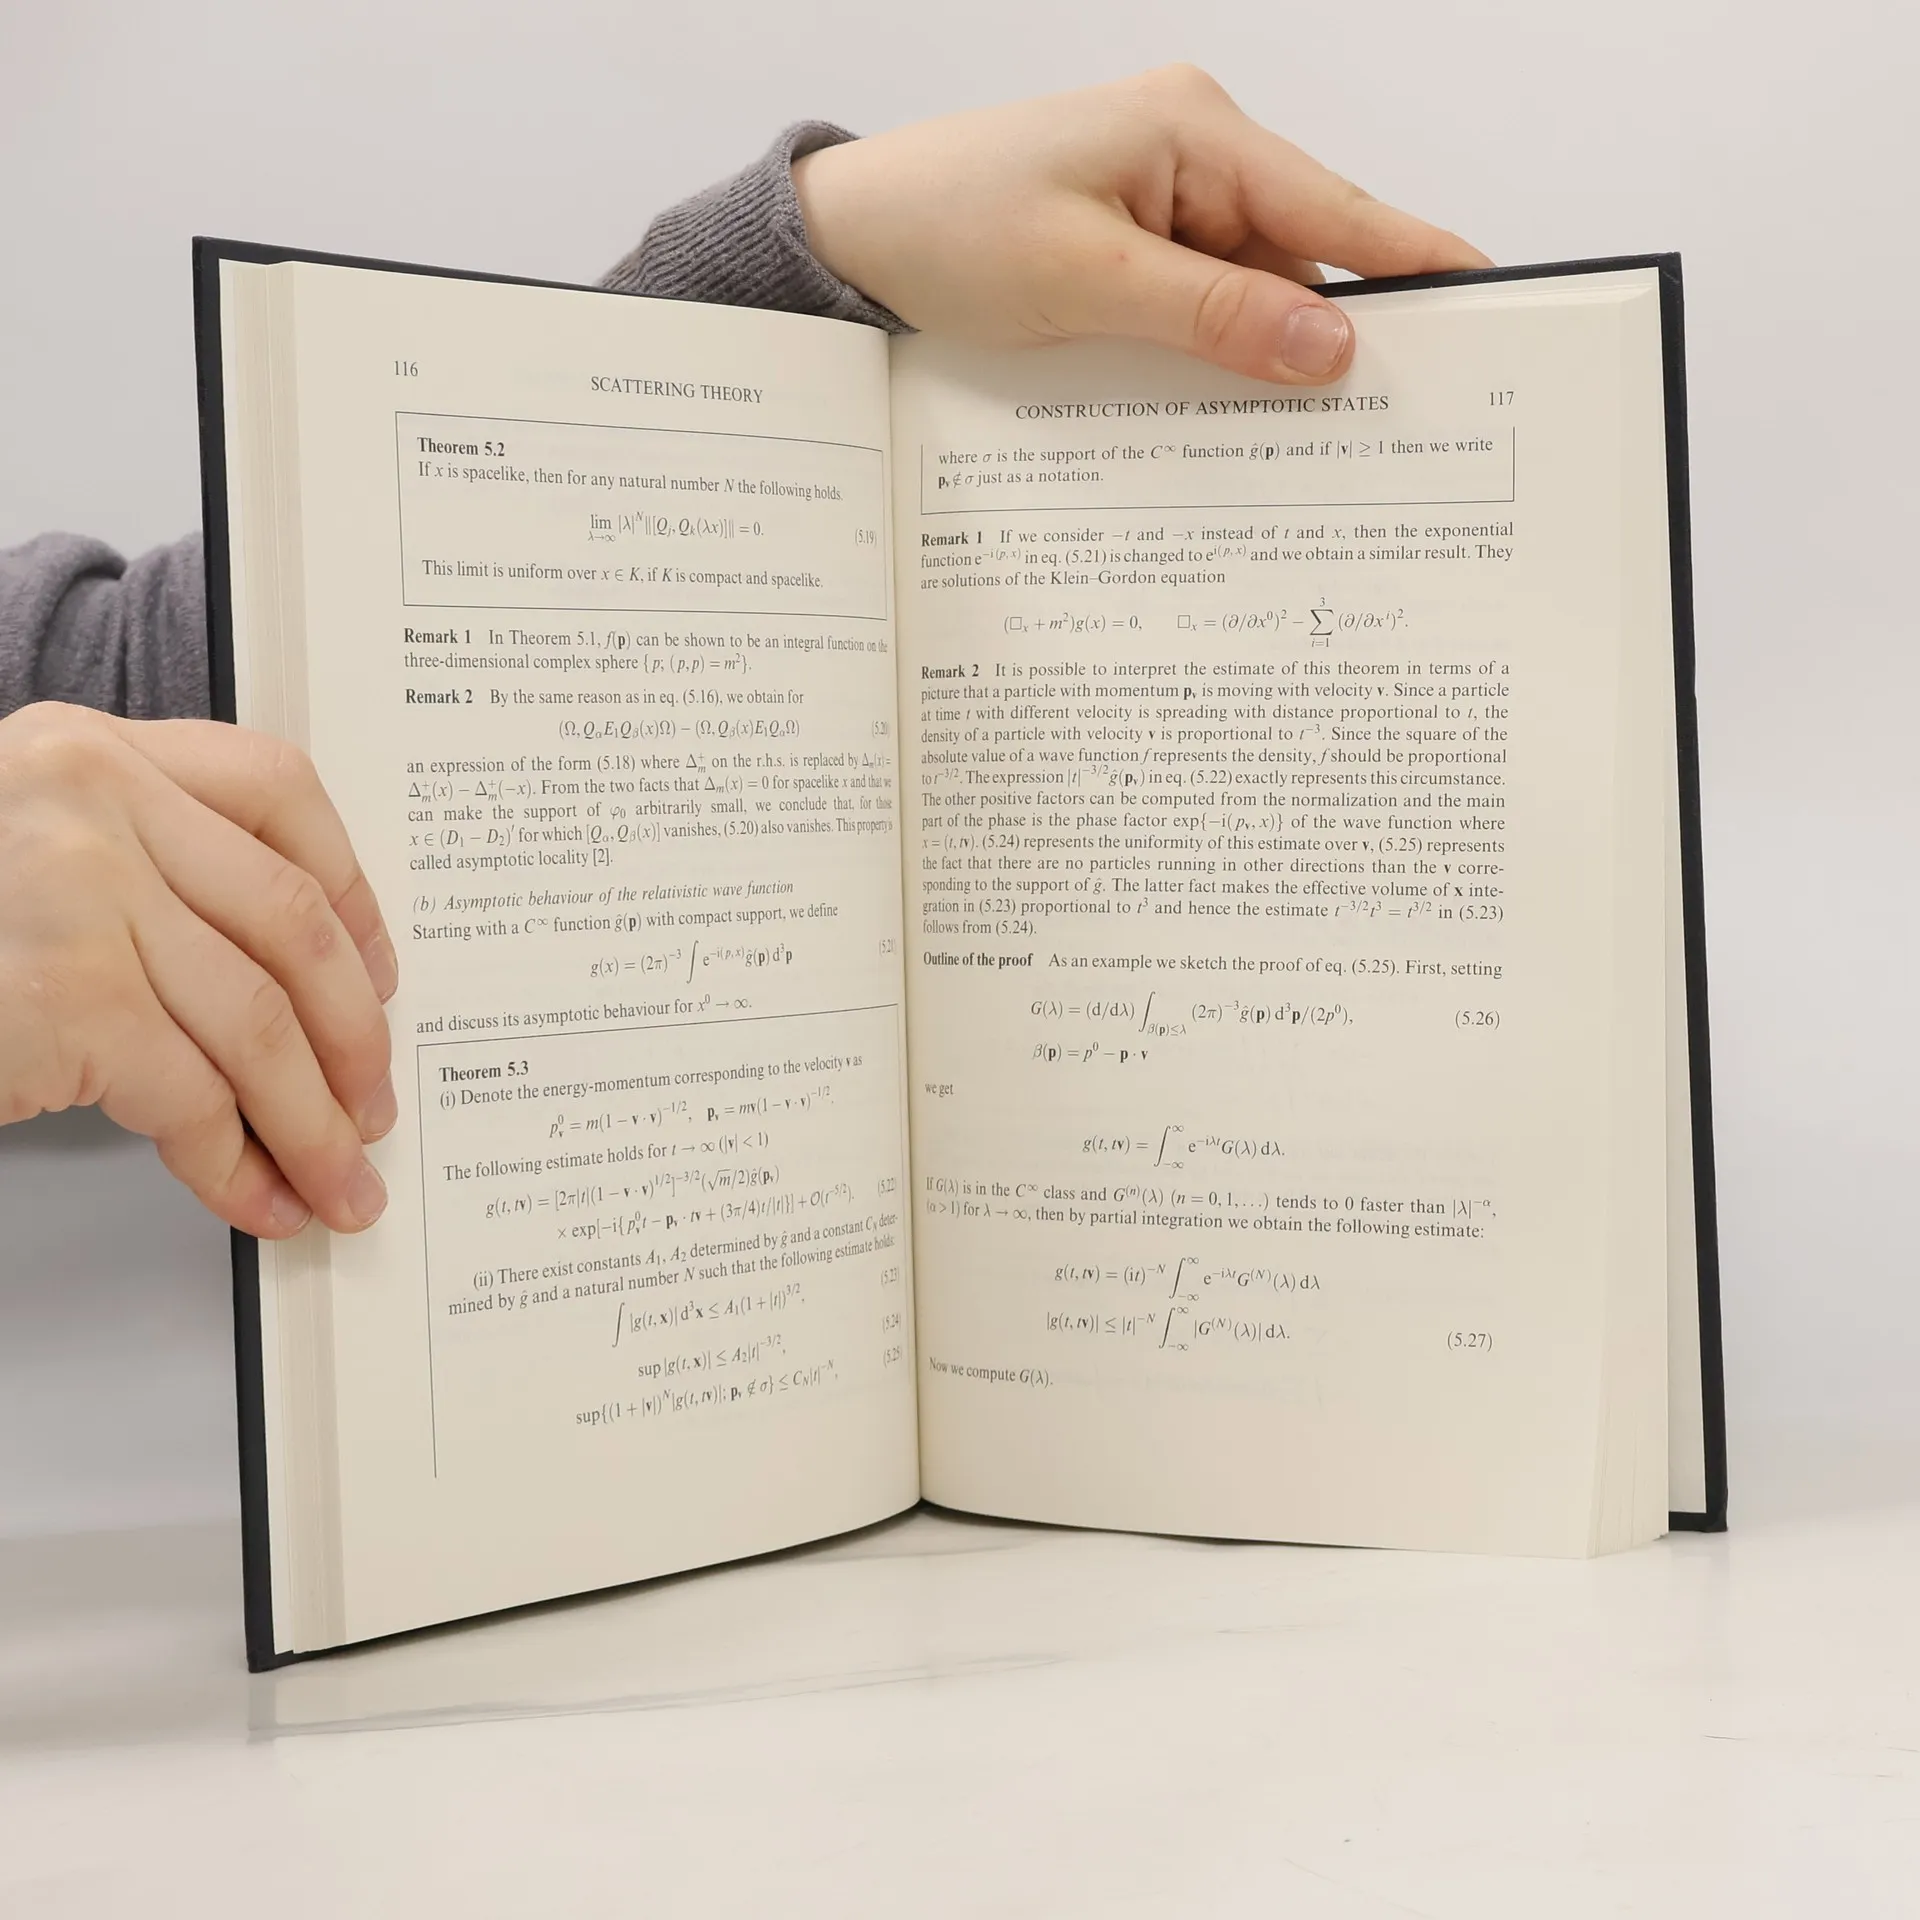 116
SCATTERING THEORY
Theorem 5.2
If x is spacelike, then for any natural number N the following holds.
lim_{λ→∞} |λ|^N ||[Q_j, Q_k(λx)]|| = 0. (5.19)
This limit is uniform over x ∈ K, if K is compact and spacelike.
Remark 1 In Theorem 5.1, f(p) can be shown to be an integral function on the
three-dimensional complex sphere {p; (p,p) = m²}.
Remark 2 By the same reason as in eq. (5.16), we obtain for
(Ω, Q_α E₁ Q_β(x)Ω) − (Ω, Q_β(x) E₁ Q_α Ω) (5.20)
an expression of the form (5.18) where Δ⁺_m on the r.h.s. is replaced by Δ_m(x) =
Δ⁺_m(x) − Δ⁺_m(−x). From the two facts that Δ_m(x) = 0 for spacelike x and that we
can make the support of φ₀ arbitrarily small, we conclude that, for those
x ∈ (D₁ − D₂)′ for which [Q_α, Q_β(x)] vanishes, (5.20) also vanishes. This property is
called asymptotic locality [2].
(b) Asymptotic behaviour of the relativistic wave function
Starting with a C^∞ function ĝ(p) with compact support, we define
g(x) = (2π)^{−3} ∫ e^{−i(p,x)} ĝ(p) d³p (5.21)
and discuss its asymptotic behaviour for x⁰ → ∞.
Theorem 5.3
(i) Denote the energy-momentum corresponding to the velocity v as
p⁰_v = m(1 − v · v)^{−1/2}, p_v = mv(1 − v · v)^{−1/2}.
The following estimate holds for t → ∞ (|v| < 1)
g(t, tv) = [2π|t|(1 − v · v)^{1/2}]^{−3/2}(√m/2)ĝ(p_v)
× exp[−i{p⁰_v t − p_v · tv + (3π/4)t/|t|}] + O(t^{−5/2}). (5.22)
(ii) There exist constants A₁, A₂ determined by ĝ and a constant C_N deter-
mined by ĝ and a natural number N such that the following estimate holds:
∫ |g(t, x)| d³x ≤ A₁(1 + |t|)^{3/2}, (5.23)
sup |g(t, x)| ≤ A₂|t|^{−3/2}, (5.24)
sup{(1 + |v|)^N |g(t, tv)|; p_v ∉ σ} ≤ C_N|t|^{−N}, (5.25)
CONSTRUCTION OF ASYMPTOTIC STATES
117
where σ is the support of the C^∞ function ĝ(p) and if |v| ≥ 1 then we write
p_v ∉ σ just as a notation.
Remark 1 If we consider −t and −x instead of t and x, then the exponential
function e^{−i(p,x)} in eq. (5.21) is changed to e^{i(p,x)} and we obtain a similar result. They
are solutions of the Klein–Gordon equation
(□_x + m²)g(x) = 0, □_x = (∂/∂x⁰)² − ∑_{i=1}^{3} (∂/∂x^i)².
Remark 2 It is possible to interpret the estimate of this theorem in terms of a
picture that a particle with momentum p_v is moving with velocity v. Since a particle
at time t with different velocity is spreading with distance proportional to t, the
density of a particle with velocity v is proportional to t^{−3}. Since the square of the
absolute value of a wave function f represents the density, f should be proportional
to t^{−3/2}. The expression |t|^{−3/2}ĝ(p_v) in eq. (5.22) exactly represents this circumstance.
The other positive factors can be computed from the normalization and the main
part of the phase is the phase factor exp{−i(p_v, x)} of the wave function where
x = (t, tv). (5.24) represents the uniformity of this estimate over v, (5.25) represents
the fact that there are no particles running in other directions than the v corre-
sponding to the support of ĝ. The latter fact makes the effective volume of x inte-
gration in (5.23) proportional to t³ and hence the estimate t^{−3/2}t³ = t^{3/2} in (5.23)
follows from (5.24).
Outline of the proof As an example we sketch the proof of eq. (5.25). First, setting
G(λ) = (d/dλ) ∫_{β(p)≤λ} (2π)^{−3} ĝ(p) d³p/(2p⁰), (5.26)
β(p) = p⁰ − p · v
we get
g(t, tv) = ∫_{−∞}^{∞} e^{−iλt} G(λ) dλ.
If G(λ) is in the C^∞ class and G^{(n)}(λ) (n = 0, 1, . . .) tends to 0 faster than |λ|^{−α},
(α > 1) for λ → ∞, then by partial integration we obtain the following estimate:
g(t, tv) = (it)^{−N} ∫_{−∞}^{∞} e^{−iλt} G^{(N)}(λ) dλ
|g(t, tv)| ≤ |t|^{−N} ∫_{−∞}^{∞} |G^{(N)}(λ)| dλ. (5.27)
Now we compute G(λ).